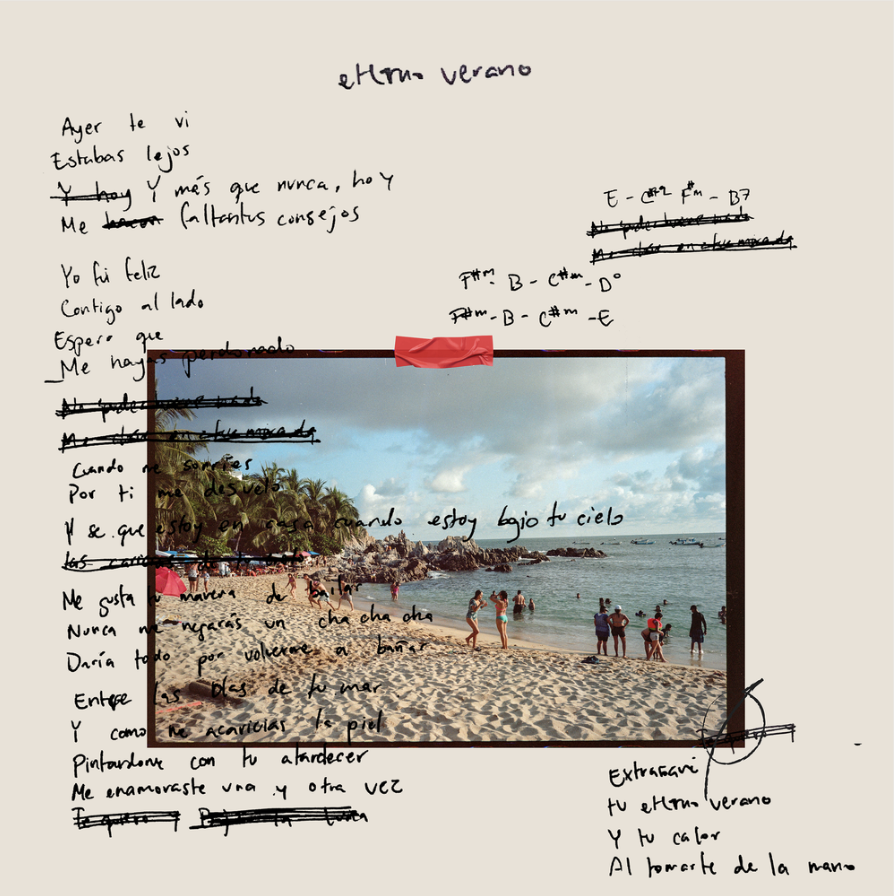 eterno verano
Ayer te vi
Estabas lejos
Y hoy Y más que nunca, hoy
Me hacen faltan tus consejos
Yo fui feliz
Contigo al lado
Espero que
Me hayas perdonado
E - C#m F#m - B7
No puder nada
Me en tu mirada
F#m - B - C#m - D°
F#m - B - C#m - E
No puder nada
Me en tu mirada
Cuando me sonríes
Por ti me desvelo
Y se que estoy en casa cuando estoy bajo tu cielo
las de tu
Me gusta tu manera de bailar
Nunca me negarás un cha cha cha
Daría todo por volverme a bañar
Entre las olas de tu mar
Y como me acaricias la piel
Pintandome con tu atardecer
Me enamoraste una y otra vez
Te quiero
Te quiero
Extrañaré
tu eterno verano
Y tu calor
Al tomarte de la mano